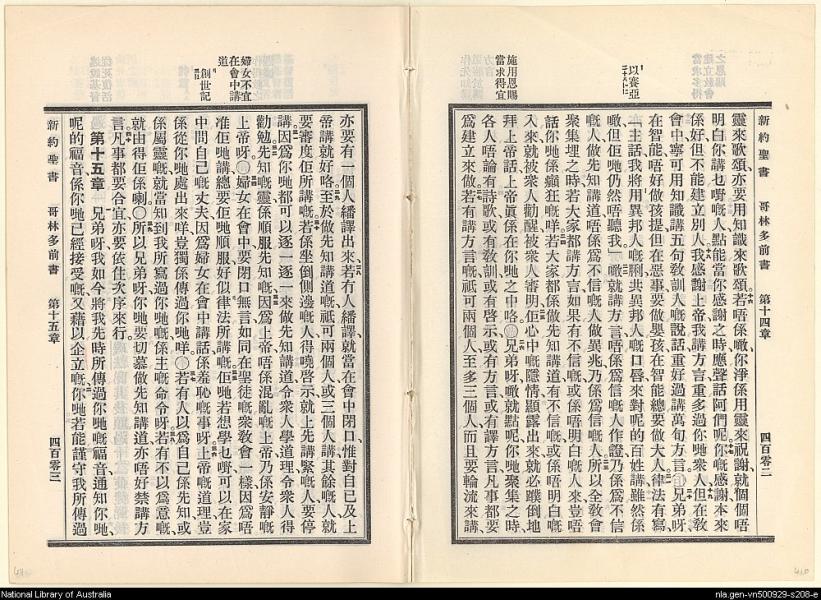 以賽亞
二十八・十一
施用恩賜
當求得宜
新約聖書 哥林多前書 第十四章 四百零二
靈來歌頌、亦要用知識來歌頌、若唔係噉、你淨係用靈來祝謝、就個個唔
明白你講乜嘢嘅人、點能當你感謝之時、應聲話阿們呢、你嘅感謝本來
係好、但不能建立別人、我感謝上帝、我講方言重多過你哋衆人、但在敎
會中、寧可用知識講五句敎訓人嘅說話、重好過講萬句方言、○兄弟呀、
在智能唔好做孩提、但在惡事要做嬰孩、在智能總要做大人、律法有寫、
「主話我將用異邦人嘅脷、共異邦人嘅口唇、來對呢的百姓講、雖然係
噉、但佢哋仍然唔聽我」、噉就講方言唔係爲信嘅人作證、乃係爲不信
嘅人、做先知講道、唔係爲不信嘅人做異兆、乃係爲信嘅人、所以全敎會
聚集埋之時、若大家都講方言、如果有不信嘅、或係唔明白嘅人來、豈唔
話你哋係癲狂嘅咩、若大家都係做先知講道、有不信嘅、或係唔明白嘅
入來、就被衆人勸醒、被衆人審明、佢心中嘅隱情顯露出來、就必撲倒地
拜上帝、話上帝眞係在你哋之中咯、○兄弟呀、噉就點呢、你哋聚集之時、
各人唔論有詩歌、或有敎訓、或有啓示、或有方言、或有譯方言、凡事都要
爲建立來做、若有講方言嘅、祗可兩個人、至多三個人、而且要輪流來講、
婦女不宜
在會中講
道
創世記
亦要有一個人繙譯出來、若冇人繙譯、就當在會中閉口、惟對自己及上
帝講就好咯、至於做先知講道嘅、祗可兩個人、或三個人講、其餘嘅人、就
要審度佢所講嘅、若係坐倒側邊嘅人、得曉啓示、就上先講緊嘅人要停
講、因爲你哋都可以逐一逐一來做先知講道、令衆人學道理、令衆人得
勸勉、先知嘅靈、係順服先知嘅、因爲上帝唔係混亂嘅上帝、乃係安靜嘅
上帝呀、○婦女在會中要閉口無言、如同在聖徒嘅衆敎會一樣、因爲唔
准佢哋講、總要佢哋順服、好似律法所講嘅、佢哋若想學乜嘢、可以在家
中問自己嘅丈夫、因爲婦女在會中講話、係羞恥嘅事呀、上帝嘅道理、豈
係從你哋處出來咩、豈獨係傳過你哋咩、○若有人以爲自己係先知、或
係屬靈嘅、就當知到我所寫過你哋嘅、係主嘅命令呀、若有不以爲意嘅、
就由得佢係喇、○所以兄弟呀、你哋要切慕做先知講道、亦唔好禁講方
言、凡事都要合宜、亦要依住次序來行、
第十五章 兄弟呀、我如今將我先時所傳過你哋嘅福音通知你哋、
呢的福音、係你哋已經接受嘅、又藉以企立嘅、你哋若能謹守我所傳過
新約聖書 哥林多前書 第十五章 四百零三
National Library of Australia
nla.gen-vn500929-s208-e